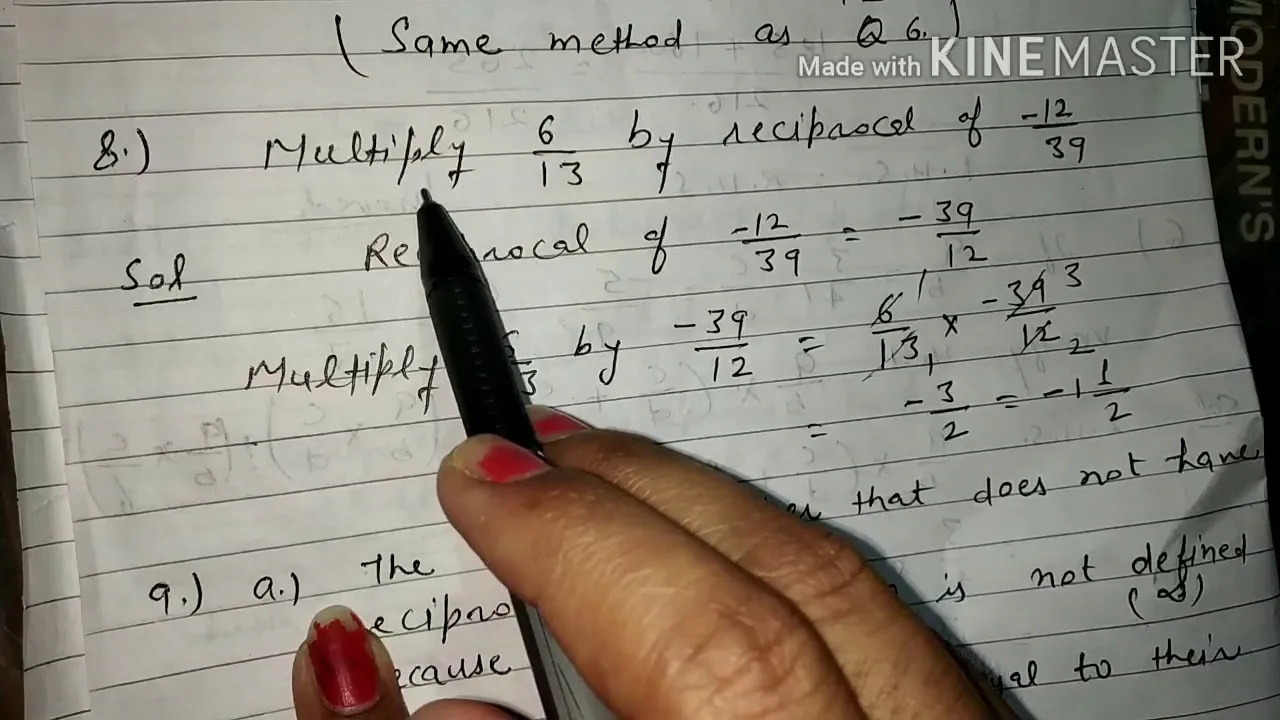 ( Same method as Q 6. )
Made with KINEMASTER
MODERN'S
8.) Multiply 6/13 by reciprocal of -12/39
Sol Reciprocal of -12/39 = -39/12
Multiply by -39/12 = 6/13 × -39/12 1 1 3 2
= -3/2 = -1 1/2
that does not have
9.) a.) The is not defined
(∞)
because to their